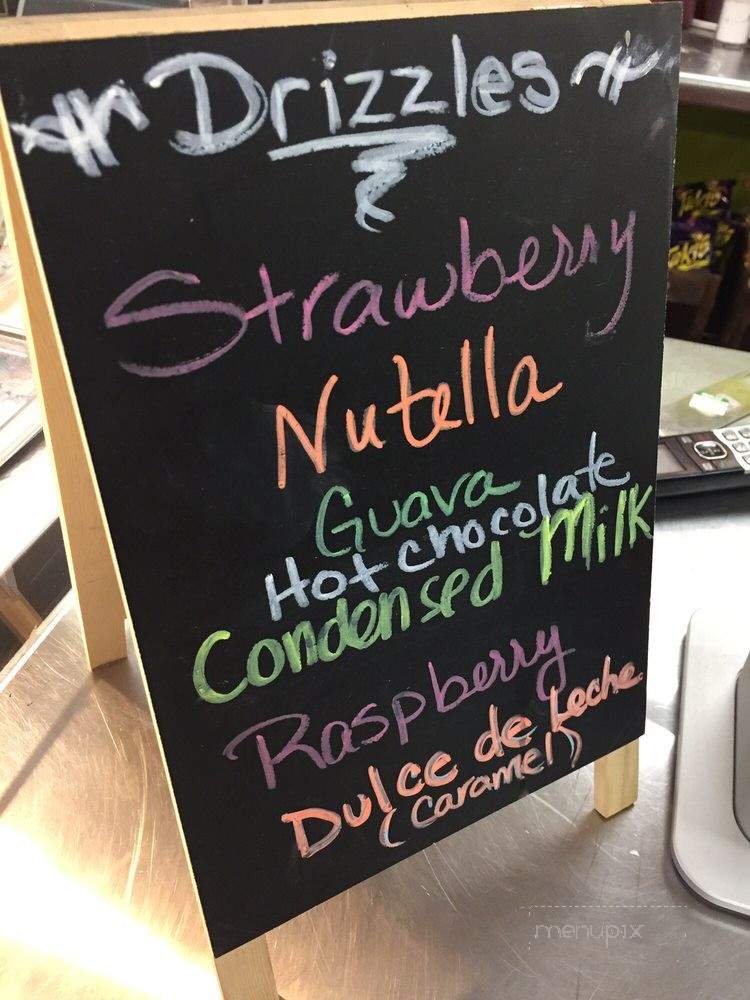 Drizzles
Strawberry
Nutella
Guava
Hot chocolate
Condensed Milk
Raspberry
Dulce de Leche
(Caramel)
Takis
Takis
menupix